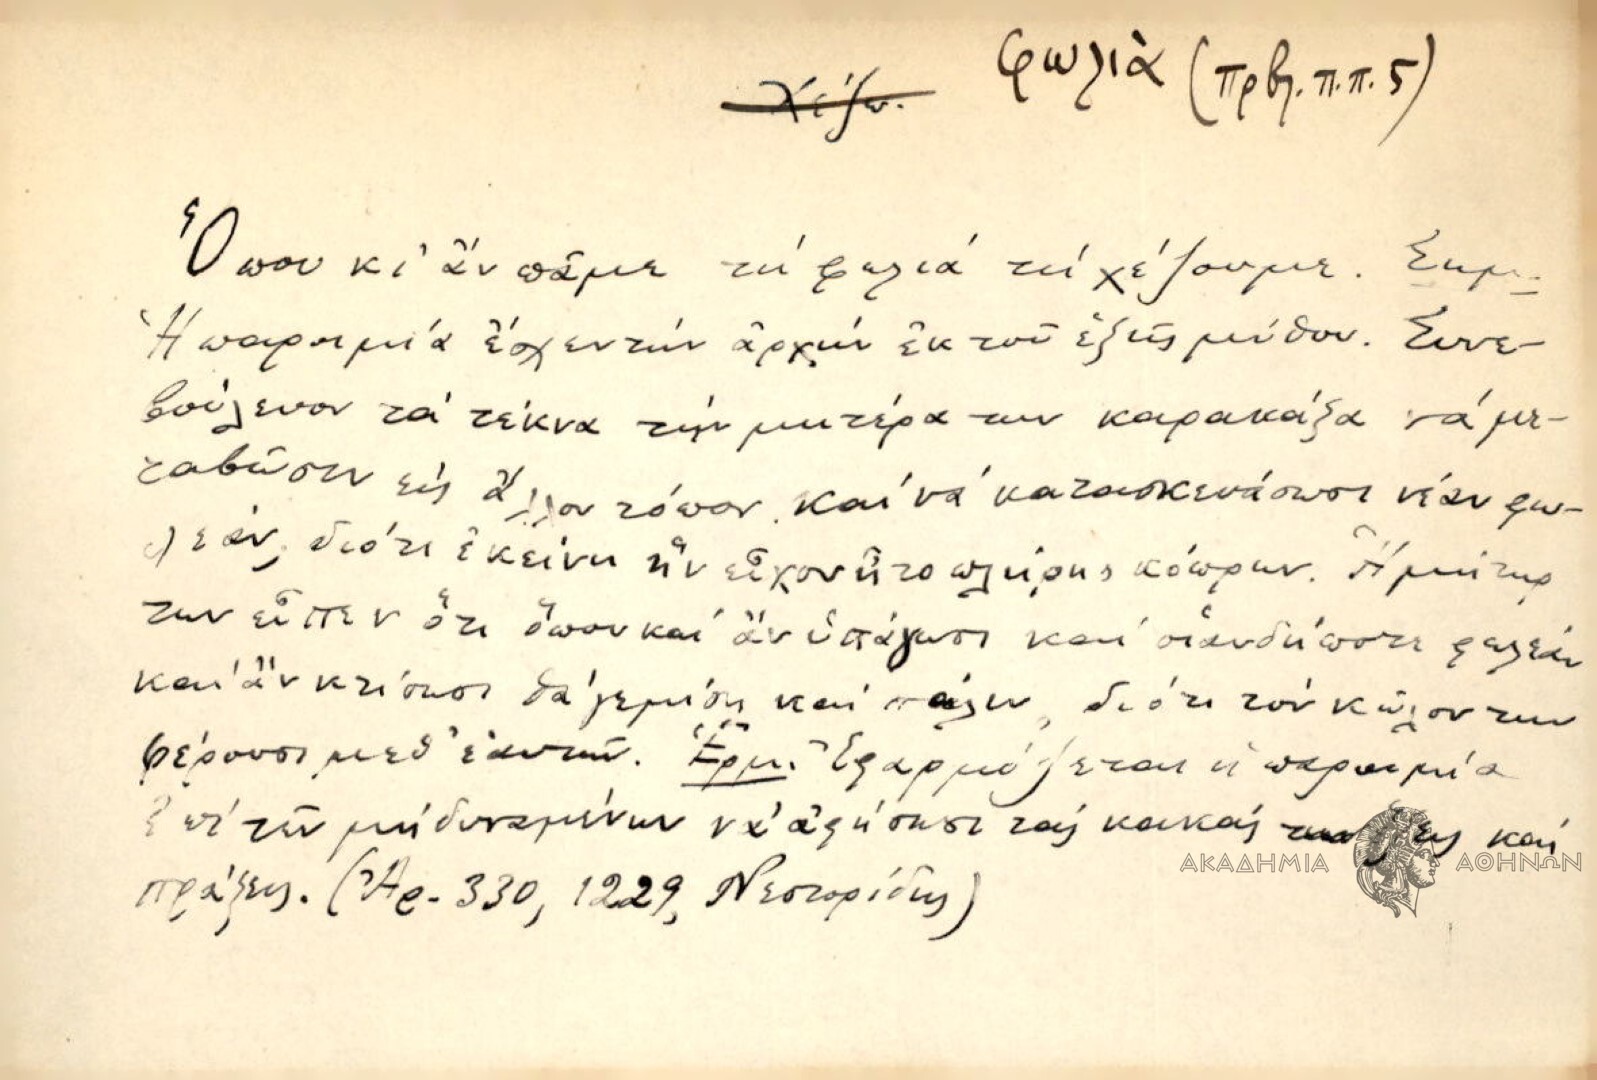 χέζω. φωλιὰ (πρβλ. π.π. 5)
Ὅπου κι' ἂν πᾶμε τὴ φωλιά τὴ χέζουμε. Σημ.
Ἡ παροιμία ἔσχεν τὴν ἀρχήν ἐκ τοῦ ἑξῆς μύθου. Συνε-
βούλευον τὰ τέκνα τὴν μητέρα των καρακάξα νά με-
ταβῶσιν εἰς ἄλλον τόπον καὶ νὰ κατασκευάσωσι νέαν φω-
λεάν, διότι ἐκείνη ἣν εἶχον ἦτο πλήρης κόπρων. Ἡ μήτηρ
των εἶπεν ὅτι ὅπου καὶ ἂν ὑπάγωσι καὶ οἱανδήποτε φωλεάν
καὶ ἂν κτίσωσι θὰ γεμίσῃ καὶ πάλιν, διότι τὸν κῶλον των
φέρουσι μεθ' ἑαυτῶν. Ἑρμ. Ἐφαρμόζεται ἡ παροιμία
ἐπὶ τῶν μὴ δυναμένων νὰ ἀφήσωσι τὰς κακάς των ἕξεις καὶ
πράξεις. (Ἀρ. 330, 1229, Νεστορίδης)
ΑΚΑΔΗΜΙΑ ΑΘΗΝΩΝ